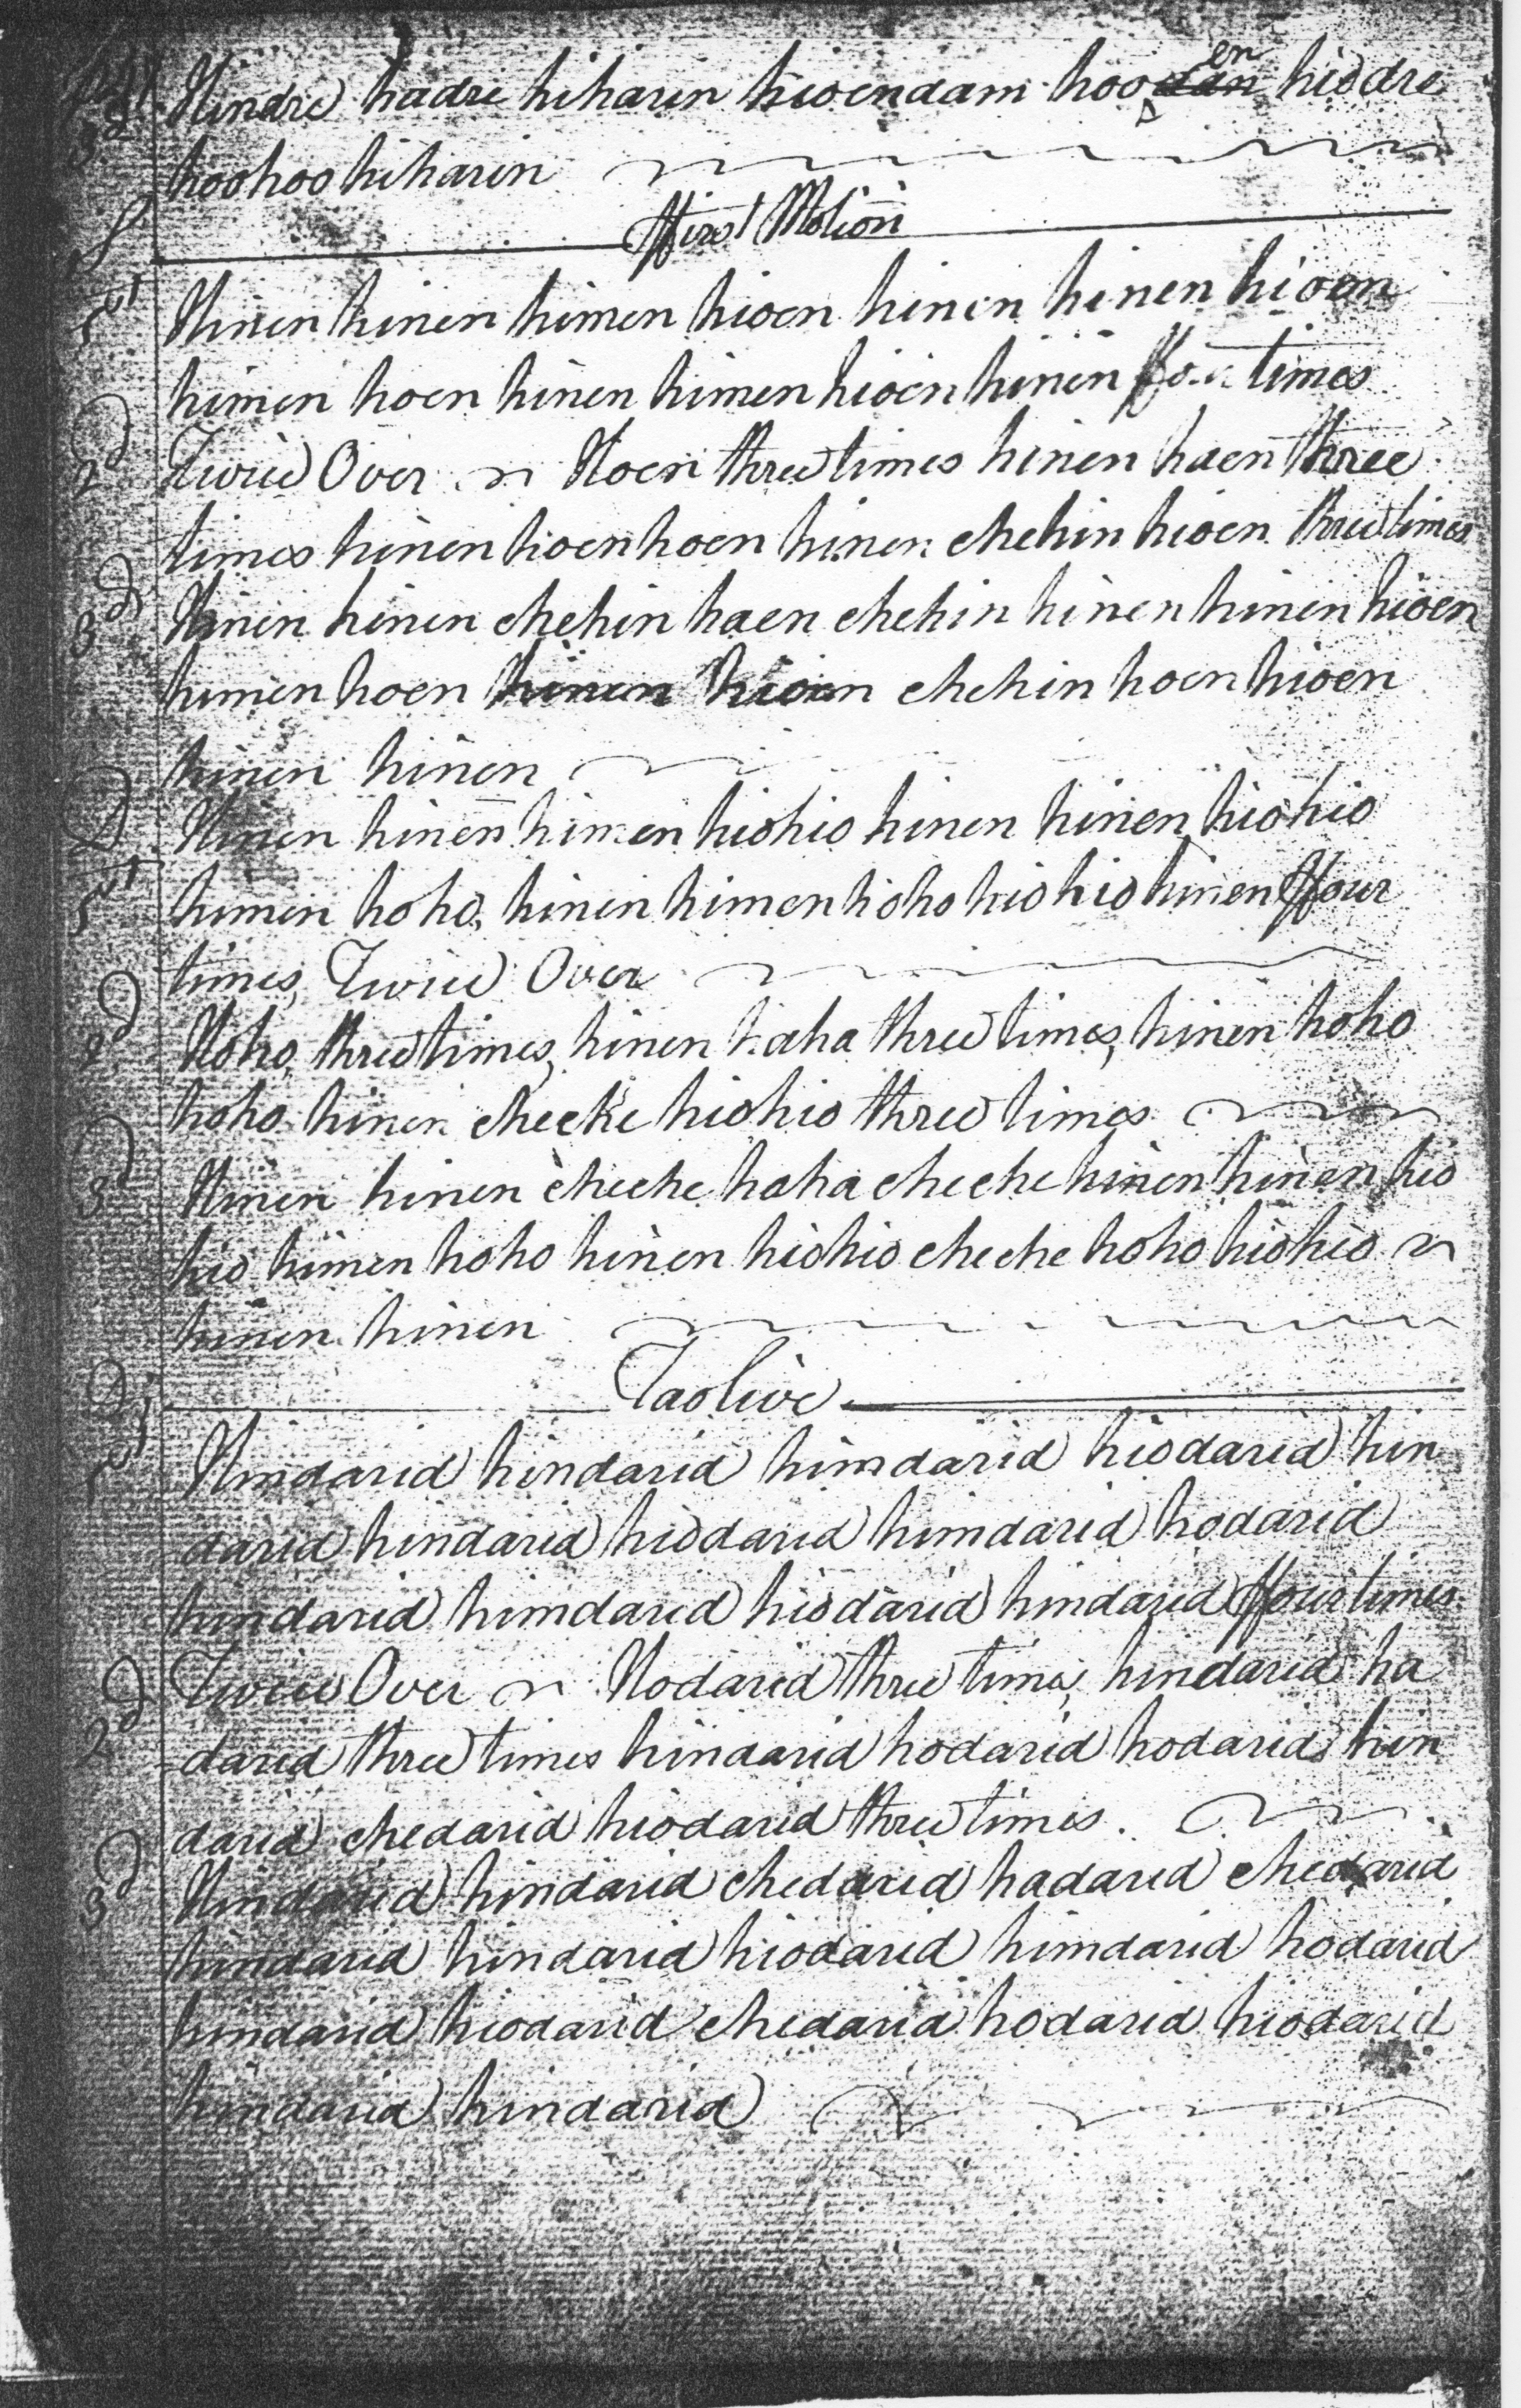 3d Hindre hadre hiharin hioendam hoo dan en hiodre
hoohoo hiharin
S first Motion
1st Hinen hinen himen hioen hinen hinen hioen
himen hoen hinen himen hioen hinen ffour times
2d Twice Over Hoen three times hinen haen three
times hinen hoen hoen hinen chehin hioen three times
3d Hinen hinen chehin haen chehin hinen hinen hioen
himen hoen hinen hioen chehin hoen hioen
hinen hinen
D Hinen hinen himen hiohio hinen hinen hiohio
1st himen hoho, hinen himen hoho hiohio hinen ffour
times, Twice Over
2d Hoho, three times, hinen haha three times, hinen hoho
hoho hinen cheche hiohio three times
3d Hinen hinen cheche haha cheche hinen hinen hio
hio himen hoho hinen hiohio cheche hoho hiohio
hinen hinen
D Taolive
1st Hindarid hindarid himdarid hiodarid hin
darid hindarid hiodarid himdarid hodarid
hindarid himdarid hiodarid hindarid ffour times
2d Twice Over Hodarid three times, hindarid ha
darid three times hindarid hodarid hodarid hin
darid chedarid hiodarid three times.
3d Hindarid hindarid chedarid hadarid chedarid
hindarid hindarid hiodarid himdarid hodarid
hindarid hiodarid chedarid hodarid hiodarid
hindarid hindarid